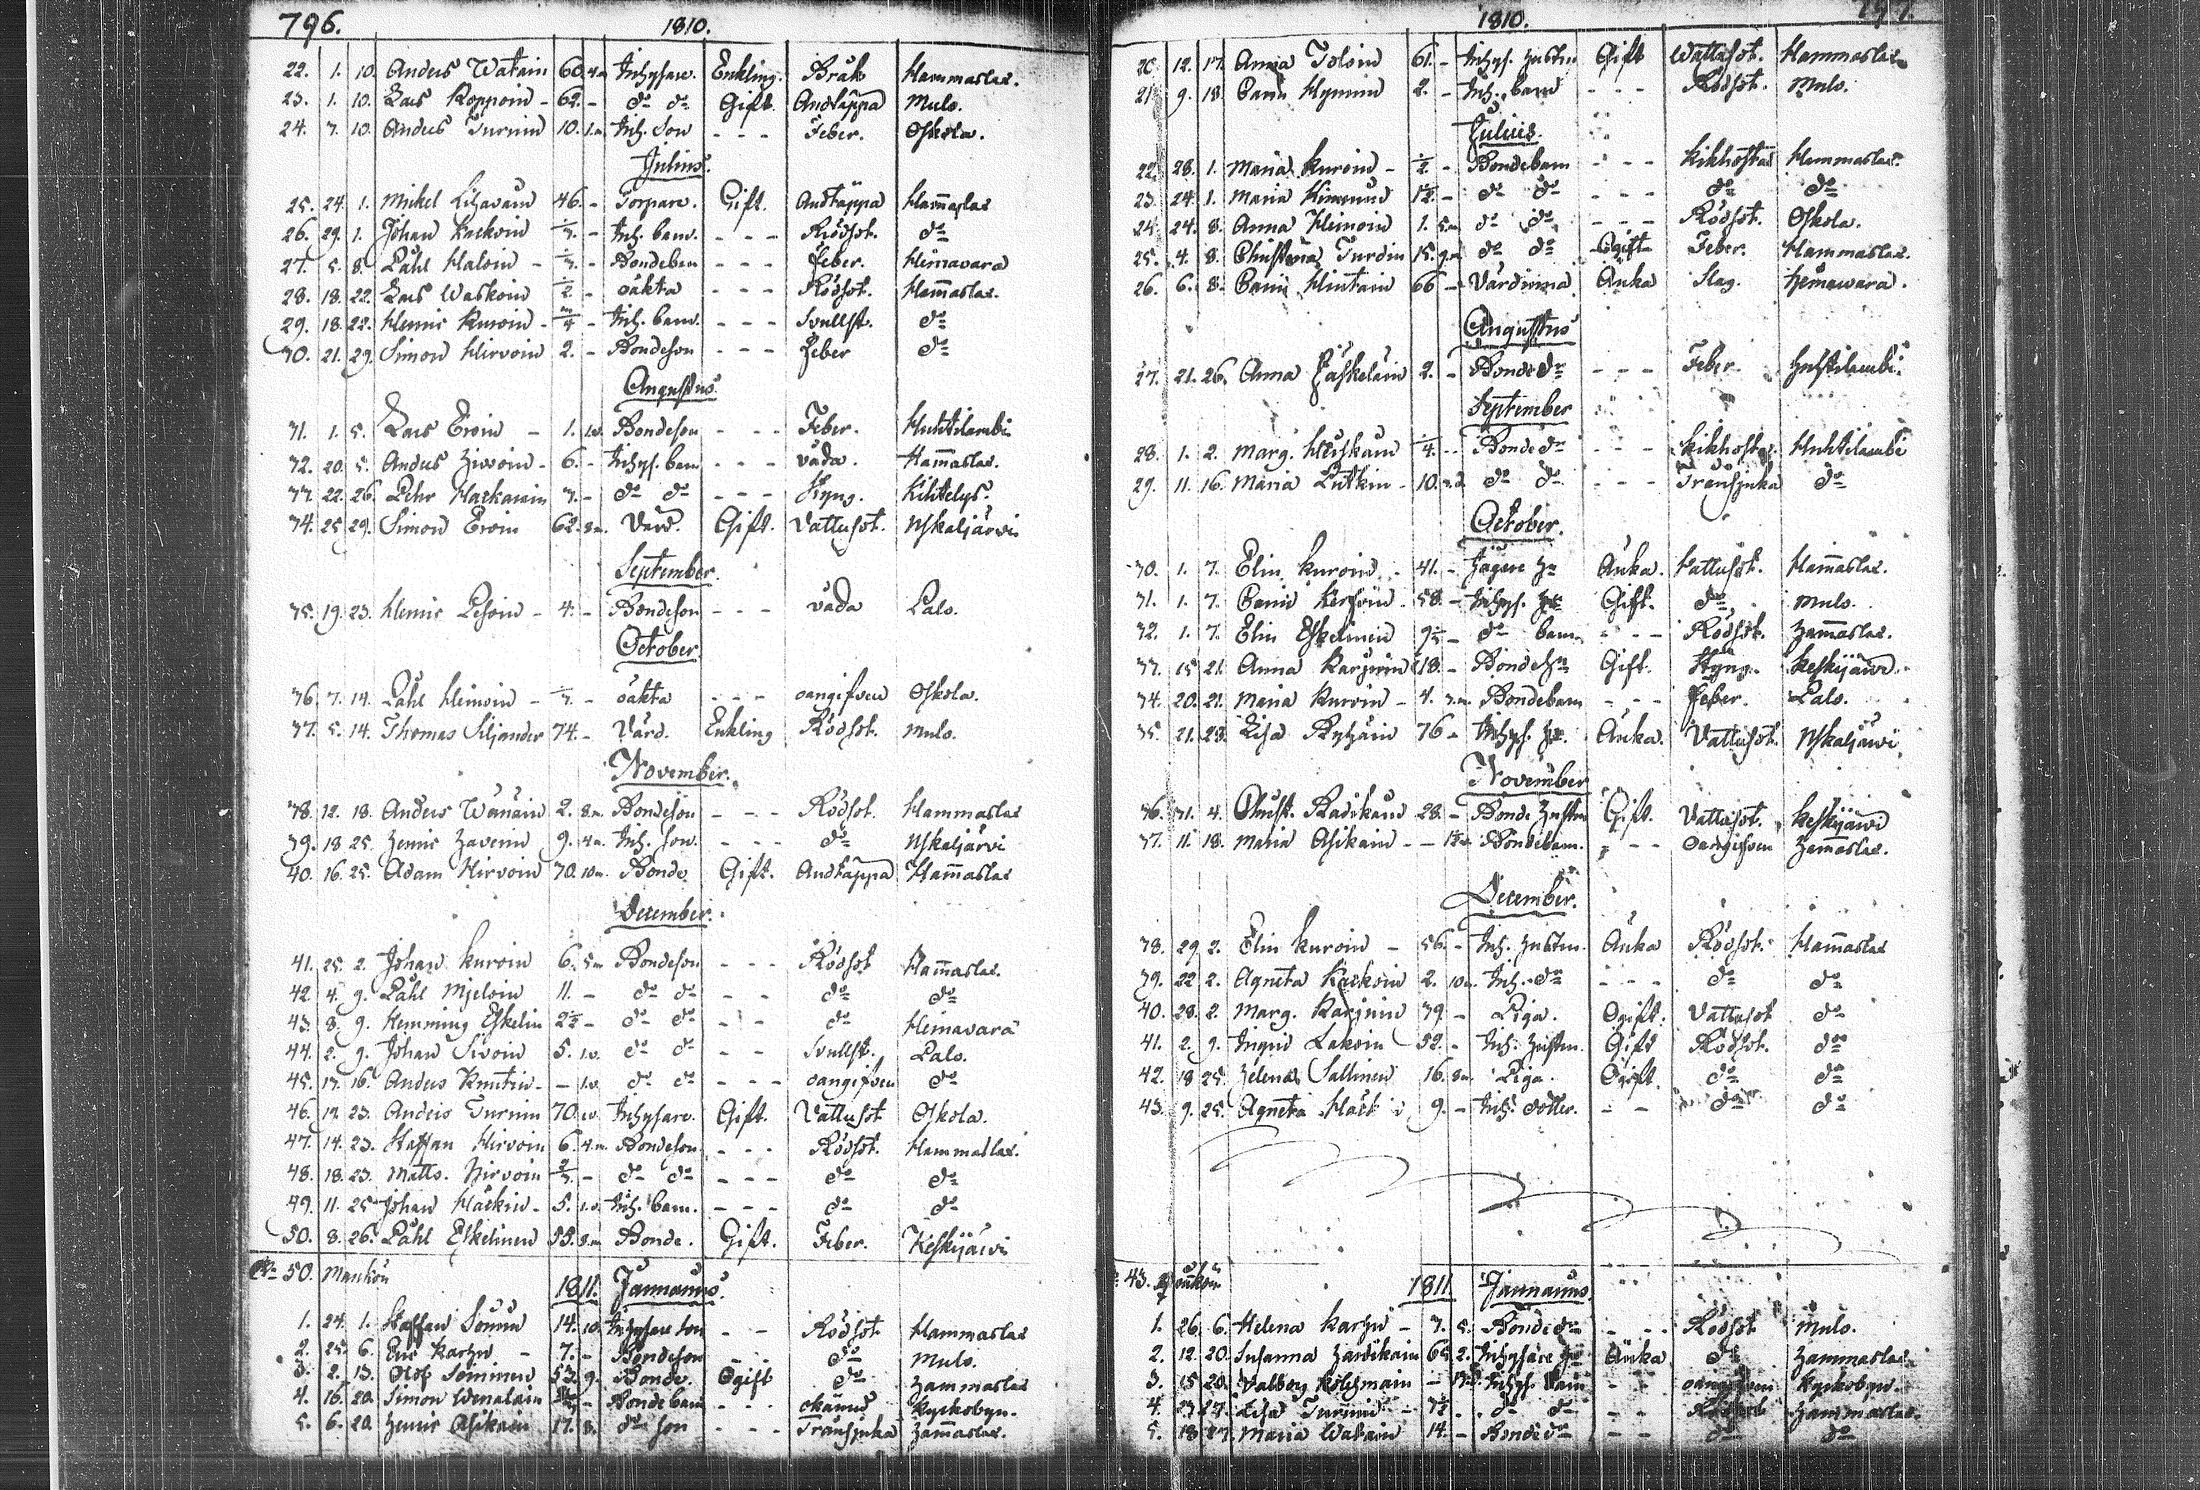 796. 1810.
22. 1. 10. Anders Watain 60. 4m Inhysare. Enkling. Bråk Hammaslax.
23. 1. 10. Lars Koppoin - 62. - do do Gift. Andtäppa Mulo.
24. 7. 10. Anders Turuin 10. 1.m Inh. Son - - - Feber. Oskola.
Julius.
25. 24. 1. Mikel 46. - Torpare. Gift. Andtäppa Hammaslax
26. 29. 1. Johan Kackoin - Inh. barn. - - - Rödsot. do
27. 5. 8. Påhl Haloin - - Bondebarn - - - Feber. Heinavara
28. 18. 22. Lars Waskoin - oäkta - - - Rödsot. Hammaslax.
29. 18. 22. Henric Kuroin - - Inh. barn. - - - Svullst. do
30. 21. 29. Simon Hirvoin 2. - Bondeson - - - Feber do
Augustus.
31. 1. 5. Lars Eroin - 1. 1.v. Bondeson - - - Feber. Huhtilambi
32. 20. 5. Anders 6. - Inhys. barn - - - våda. Hammaslax.
33. 22. 26. Pehr Harkanin 3. - do do - - - Styng. Kihtelys.
34. 25. 29. Simon Eroin 62. 8m. Värd. Gift. Vattusot. Uskaljärvi
September.
35. 19. 23. Henric Pesoin - 4. - Bondeson - - - våda Palo.
October.
36. 7. 14. Påhl Heinoin - - oäkta - - - oangifven Oskola.
37. 5. 14. Thomas Siljander 74. - Värd. Enkling Rödsot. Mulo.
November.
38. 12. 18. Anders Wänäin 2. 8.m. Bondeson - - - Rödsot. Hammaslax
39. 18. 25. Henric Haverin 9. 4m. Inh. son. - - - do Uskaljärvi
40. 16. 25. Adam Hirvoin 70. 10m. Bonde Gift. Andtäppa Hammaslax
December.
41. 25. 2. Johan Kuroin 6. 5m Bondeson - - - Rödsot Hammaslax.
42. 4. 9. Påhl Mjeloin 11. - do do - - do do
43. 8. 9. Hemming Eskelin 2½ - do do - - do Heinavara
44. 2. 9. Johan Sivoin 5. 1.v. do do - - Svullst. Palo.
45. 13. 16. Anders Knutin - - 1.v. do do - - - oangifven do
46. 12. 23. Anders Turuin 70. 1.v. Inhysare. Gift. Vattusot Oskola.
47. 14. 23. Staffan Hirvoin 6. 4.m. Bondeson. - - - Rödsot. Hammaslax.
48. 18. 23. Matts. Hirvoin - do do - - - do do
49. 11. 25. Johan Häckin - 5. 1.v. Inh. barn. - - - do do
50. 8. 26. Påhl Eskelinen 53. 8.m Bonde. Gift. Feber. Keskijärvi
50. Mankön
1811. Januarius.
1. 24. 1. Staffan 14. 10. Inhysare son - - Rödsot. Hammaslax
2. 25. 6. Eric Karhu - 7. - Bondeson do Mulo.
3. 2. 13. Olof Sominen 53. 9. Bonde. Ogift do Hammaslax
4. 16. 20. Simon Wenäläin - Bondebarn - - - okänd Kyrkobyn.
5. 6. 20. Henric Asikain 17. 8. do son - - - Trånsjuka Hammaslax.
1810. 797.
20. 12. 17. Anna Toloin 61. - Inhys. Hustru Gift Wattusot. Hammaslax
21. 9. 18. Carin Hynnin 2. - Inh. barn - - - Rödsot. Mulo.
Julius.
22. 28. 1. Maria Kuroin - ½ - Bondebarn - - - Kikhosta Hammaslax.
23. 24. 1. Maria 1½. - do do - - - do do
24. 24. 8. Anna Heinoin 1. 5.m do do - - - Rödsot. Oskola.
25. 4. 8. Christina Turuin 15. 9.m do do Ogift Feber. Hammaslax.
26. 6. 8. Carin Hintain 66 - Värdinna Änka Slag. Heinawara.
Augustus
27. 21. 26. Anna Jäskeläin 2. - Bonde dr - - - Feber. Huhtilambi.
September
28. 1. 2. Marg. 4. - Bonde dr - - - Kikhosta. Huhtilambi
29. 11. 16. Maria Lutkin - 10. do do - - - Trånsjuka do
October.
30. 1. 7. Elin Kuroin - 41. - Jägare Änka. Vattusot. Hammaslax.
31. 1. 7. Carin 58. - Inhys. Gift. do Mulo.
32. 1. 7. Elin Eskelinen - do barn - - - Rödsot. Hammaslax.
33. 15. 21. Anna Karjuin 18. - Bonde Gift. Styng. Keskijärvi.
34. 20. 21. Maria Kuroin - 4. 3.m. Bondebarn - - - Feber. Palo.
35. 21. 28. Lisa 76 - Inhys. Änka. Vattusot. Uskaljärvi.
November
36. 31. 4. Christ. Radikain 28. - Bonde Hustru Gift. Vattusot. Keskijärvi
37. 11. 18. Maria Asikain - - Bondebarn. - - oangifven Hammaslax.
December.
38. 29. 2. Elin Kuroin - 56. - Inh. Hustru. Änka Rödsot. Hammaslax
39. 22. 2. Agneta Kackoin 2. 10m. Inh. dr - - - do do
40. 28. 2. Marg. Karjuin 39 - Piga. Ogift. Vattusot do
41. 2. 9. Ingrid Lakoin 52. - Inh. Hustru. Gift Rödsot. do
42. 18. 25. Helena Sallinen 16. 8m. Piga. Ogift. do do
43. 9. 25. Agneta Häck 9. - Inh. dotter. - - do do
43. Qvinkön
1811. Januarius
1. 26. 6. Helena Karhu - 3. 5. Bonde dr - - - Rödsot Mulo.
2. 12. 20. Susanna 62. 2. Inhysare Änka do Hammaslax.
3. 15. 20. Valborg Kolehmain - Inhys. barn - - oangifven Kyrkobyn.
4. 23. 27. Lisa Turuin - do do - - Rödsot Hammaslax.
5. 18. 27. Maria Watain 14. - Bonde dr - - do do